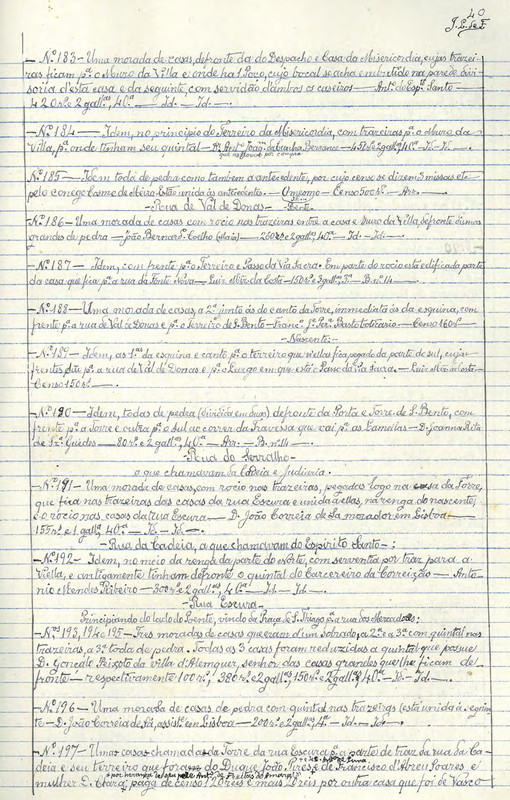 40
J. L. de F.
- Nº 183 - Uma morada de casas, defronte da do Despacho e Casa da Misericordia, cujas trazei-
ras ficam pª o Muro da Villa e onde ha 1 Poço, cujo bocal se acha embutido na parede divi-
soria d'esta casa e da seguinte, com servidão d'ambos os caseiros - Antº do Espº Santo -
420 rs e 2 gallªs, 40ª - Id. - Id. -
- Nº 184 - Idem, no principio do Terreiro da Misericordia, com trazeiras pª o Muro da
Villa, pª onde tinham seu quintal - Antº Joaqm da Cunha - 45 rs e 2 gallªs, 40ª - Id. - Id. -
que as houve por compra
- Nº 185 - Idem toda de pedra como tambem a antecedente, por cujo censo se dizem 5 missas etc
pelo conego Cosme de Miro. Estão unida ás antecedentes. - O mesmo - Censo 500 rs - Arr. -
- Rua de Val de Donas -
- Nº 186 - Uma morada de casas com rocio nas trazeiras entre a casa e muro da Villa, defronte dumas
grandes de pedra - João Bernardº Coelho - 260 rs e 2 gallªs, 40ª - Id. - Id. -
- Nº 187 - Idem, com frente pª o Terreiro e Passo da Via Sacra. Em parte do rocio está edificada parte
da casa que fica pª a rua da Fonte Nova - Luis Mª da Costa - 150 rs e 3 gallªs, 3ª - B. nº 14 -
- Nº 188 - Uma morada de casas, a 2ª junto ás do canto da Torre, immediata ás da esquina, com
frente pª a rua de Val de Donas e pª o Terreiro de S. Bento - Francº Jº Perª Basto boticario - Censo 160 rs -
- Nascente: -
- Nº 189 - Idem, as 1ªs da esquina e canto pª o terreiro que n'ellas fica, pegado da parte do sul, cujas
frentes são pª a rua de Val de Donas e pª o Largo em que está o Passo da Via Sacra. - Luis Mª da Costa -
Censo 150 rs -
- Nº 190 - Idem, todas de pedra (dividida em duas) defronte da Porta e Torre de S. Bento, com
frente pª a Torre e outra pª o sul ao correr da Travessa que vai pª as Lamellas - D. Joanna Rita
de Sª Guedes - 80 rs e 2 gallªs, 40ª - Arr. - B. nº 14 -
- Rua do Serralho -
o que chamavam da Cadeia e Judiaria.
- Nº 191 - Uma morada de casas, com rocio nas trazeiras, pegadas logo na casa da Torre,
que fica nas trazeiras das casas da rua Escura e unida a ellas, na renga do nascente,
e o rocio nas casas da rua Escura - D. João Correia de Sá morador em Lisboa -
155 rs e 1 gallª, 40ª - Id. - Id. -
- Rua da Cadeia, a que chamavam do Espirito Santo -:
- Nº 192 - Idem, no meio da renga da parte do Norte, com serventia por traz para a
Viella, e antigamente tinham defronte o quintal do Carcereiro da Correição - Anto-
nio Mendes Ribeiro - 300 rs e 2 gallªs, 40ª - Id. - Id. -
- Rua Escura -
Principiando do lado do Poente, vindo da Praça de S. Thiago pª a rua dos Mercadores:
- Nºs 193, 194 e 195 - Tres moradas de casas que eram d'um sobrado, a 2ª e a 3ª com quintal nas
trazeiras, a 3ª toda de pedra. Todas as 3 casas foram reduzidas a quintal que possue
D. Gonçalo Peixoto da villa d'Alemquer, senhor das casas grandes que lhe ficam de-
fronte - respectivamente 100 rs, 380 rs e 2 gallªs, 150 rs e 2 gallªs, 40ª - Id. - Id. -
- Nº 196 - Uma morada de casas de pedra com quintal nas trazeiras (está unida á seguin-
te - D. João Correia de Sá, assistª em Lisboa - 200 rs e 2 gallªs, 4ª - Id. - Id. -
- Nº 197 - Umas casas chamadas da Torre da rua Escura pª a parte de traz da rua da Ca-
deia e seu terreiro que foram do Duque João Pires e de Francisco d'Abreu Soares e
mulher D. Clara, paga de censo 120 reis e mais 2 reis por outra casa que foi de Vasco